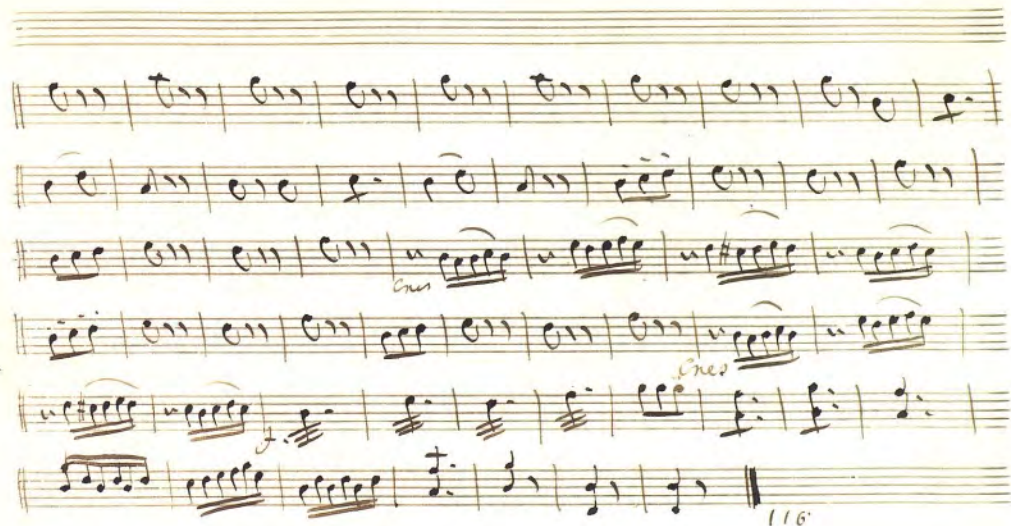 Cres
Cres
f.
116.